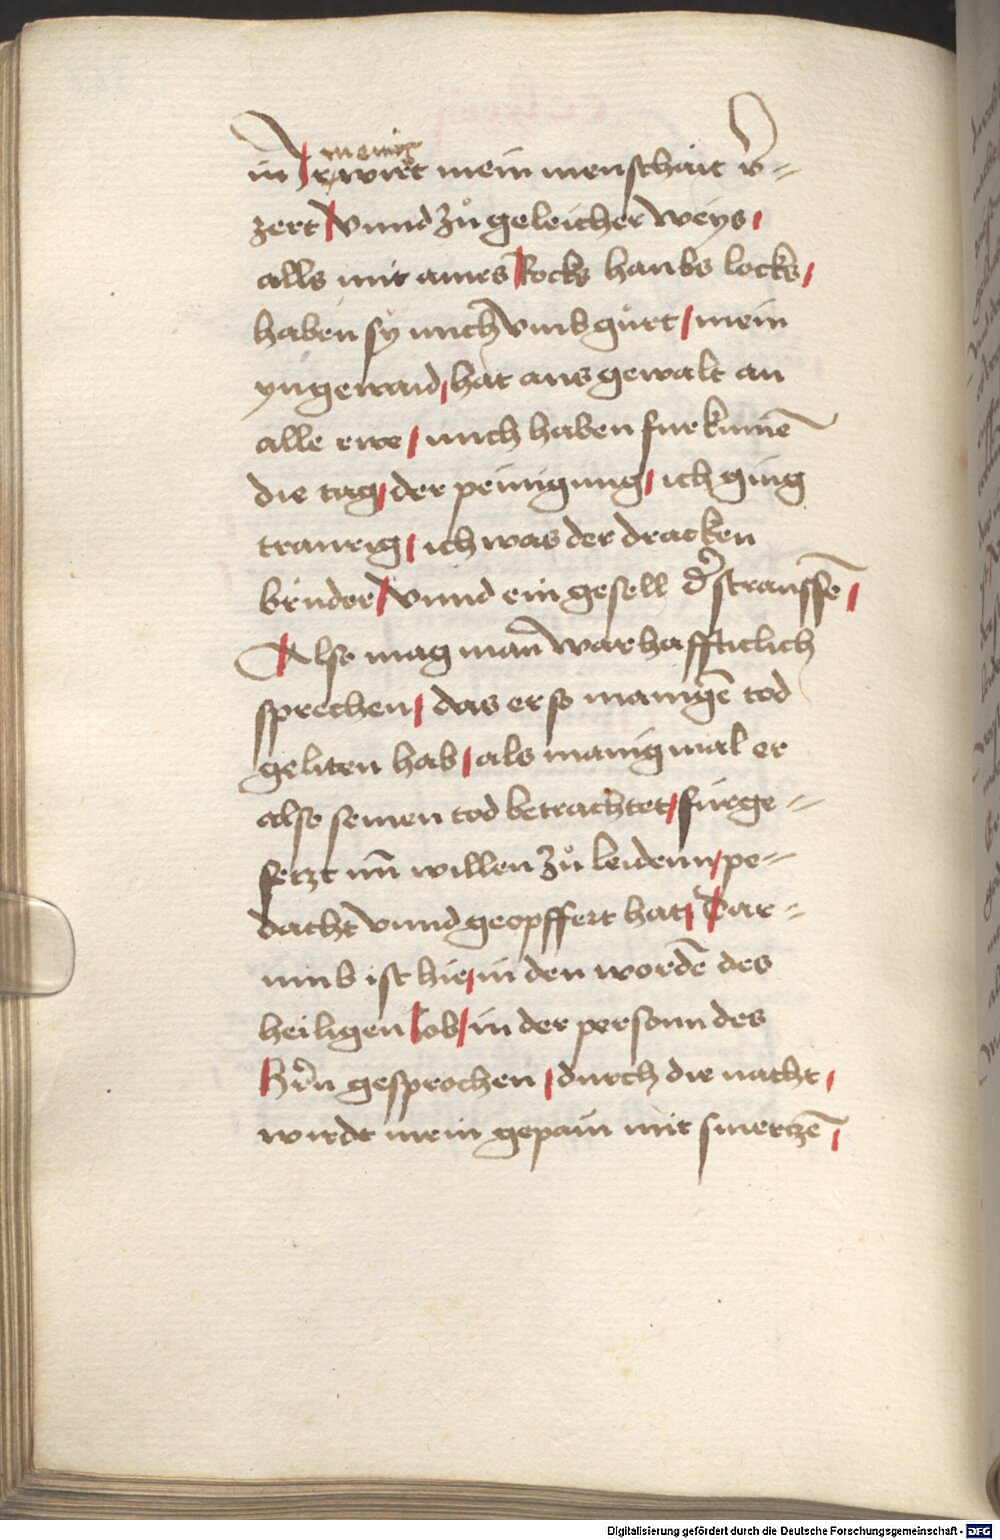 menig
in Jr wirt mein menschait v̄-
zert / vnnd zů geleicher weys /
alls mit aines Rocks haubs locks /
haben sy mich vmbgůrt / mein
yngewaid / hat ans gewalt an
alle rwe / mich haben furkumē
die tag / der peinigung / ich ging
traurig / ich was der dracken
brůder / vnnd ein gesell d̕ straussē /
Also mag man warhaffticlich
sprechen / das er so manigē tod
geliten hab / als manig mal er
also seinen tod betrachtet / fürge-
setzt mit willen zů leidenn / pe-
dacht vnnd geopffert hat / Dar-
umb ist hie / in den wordē des
heiligen Job / in der personn des
Hr̄n gesprochen / durch die nacht /
wirdt mein gepain mit smertzē /
Digitalisierung gefördert durch die Deutsche Forschungsgemeinschaft - DFG